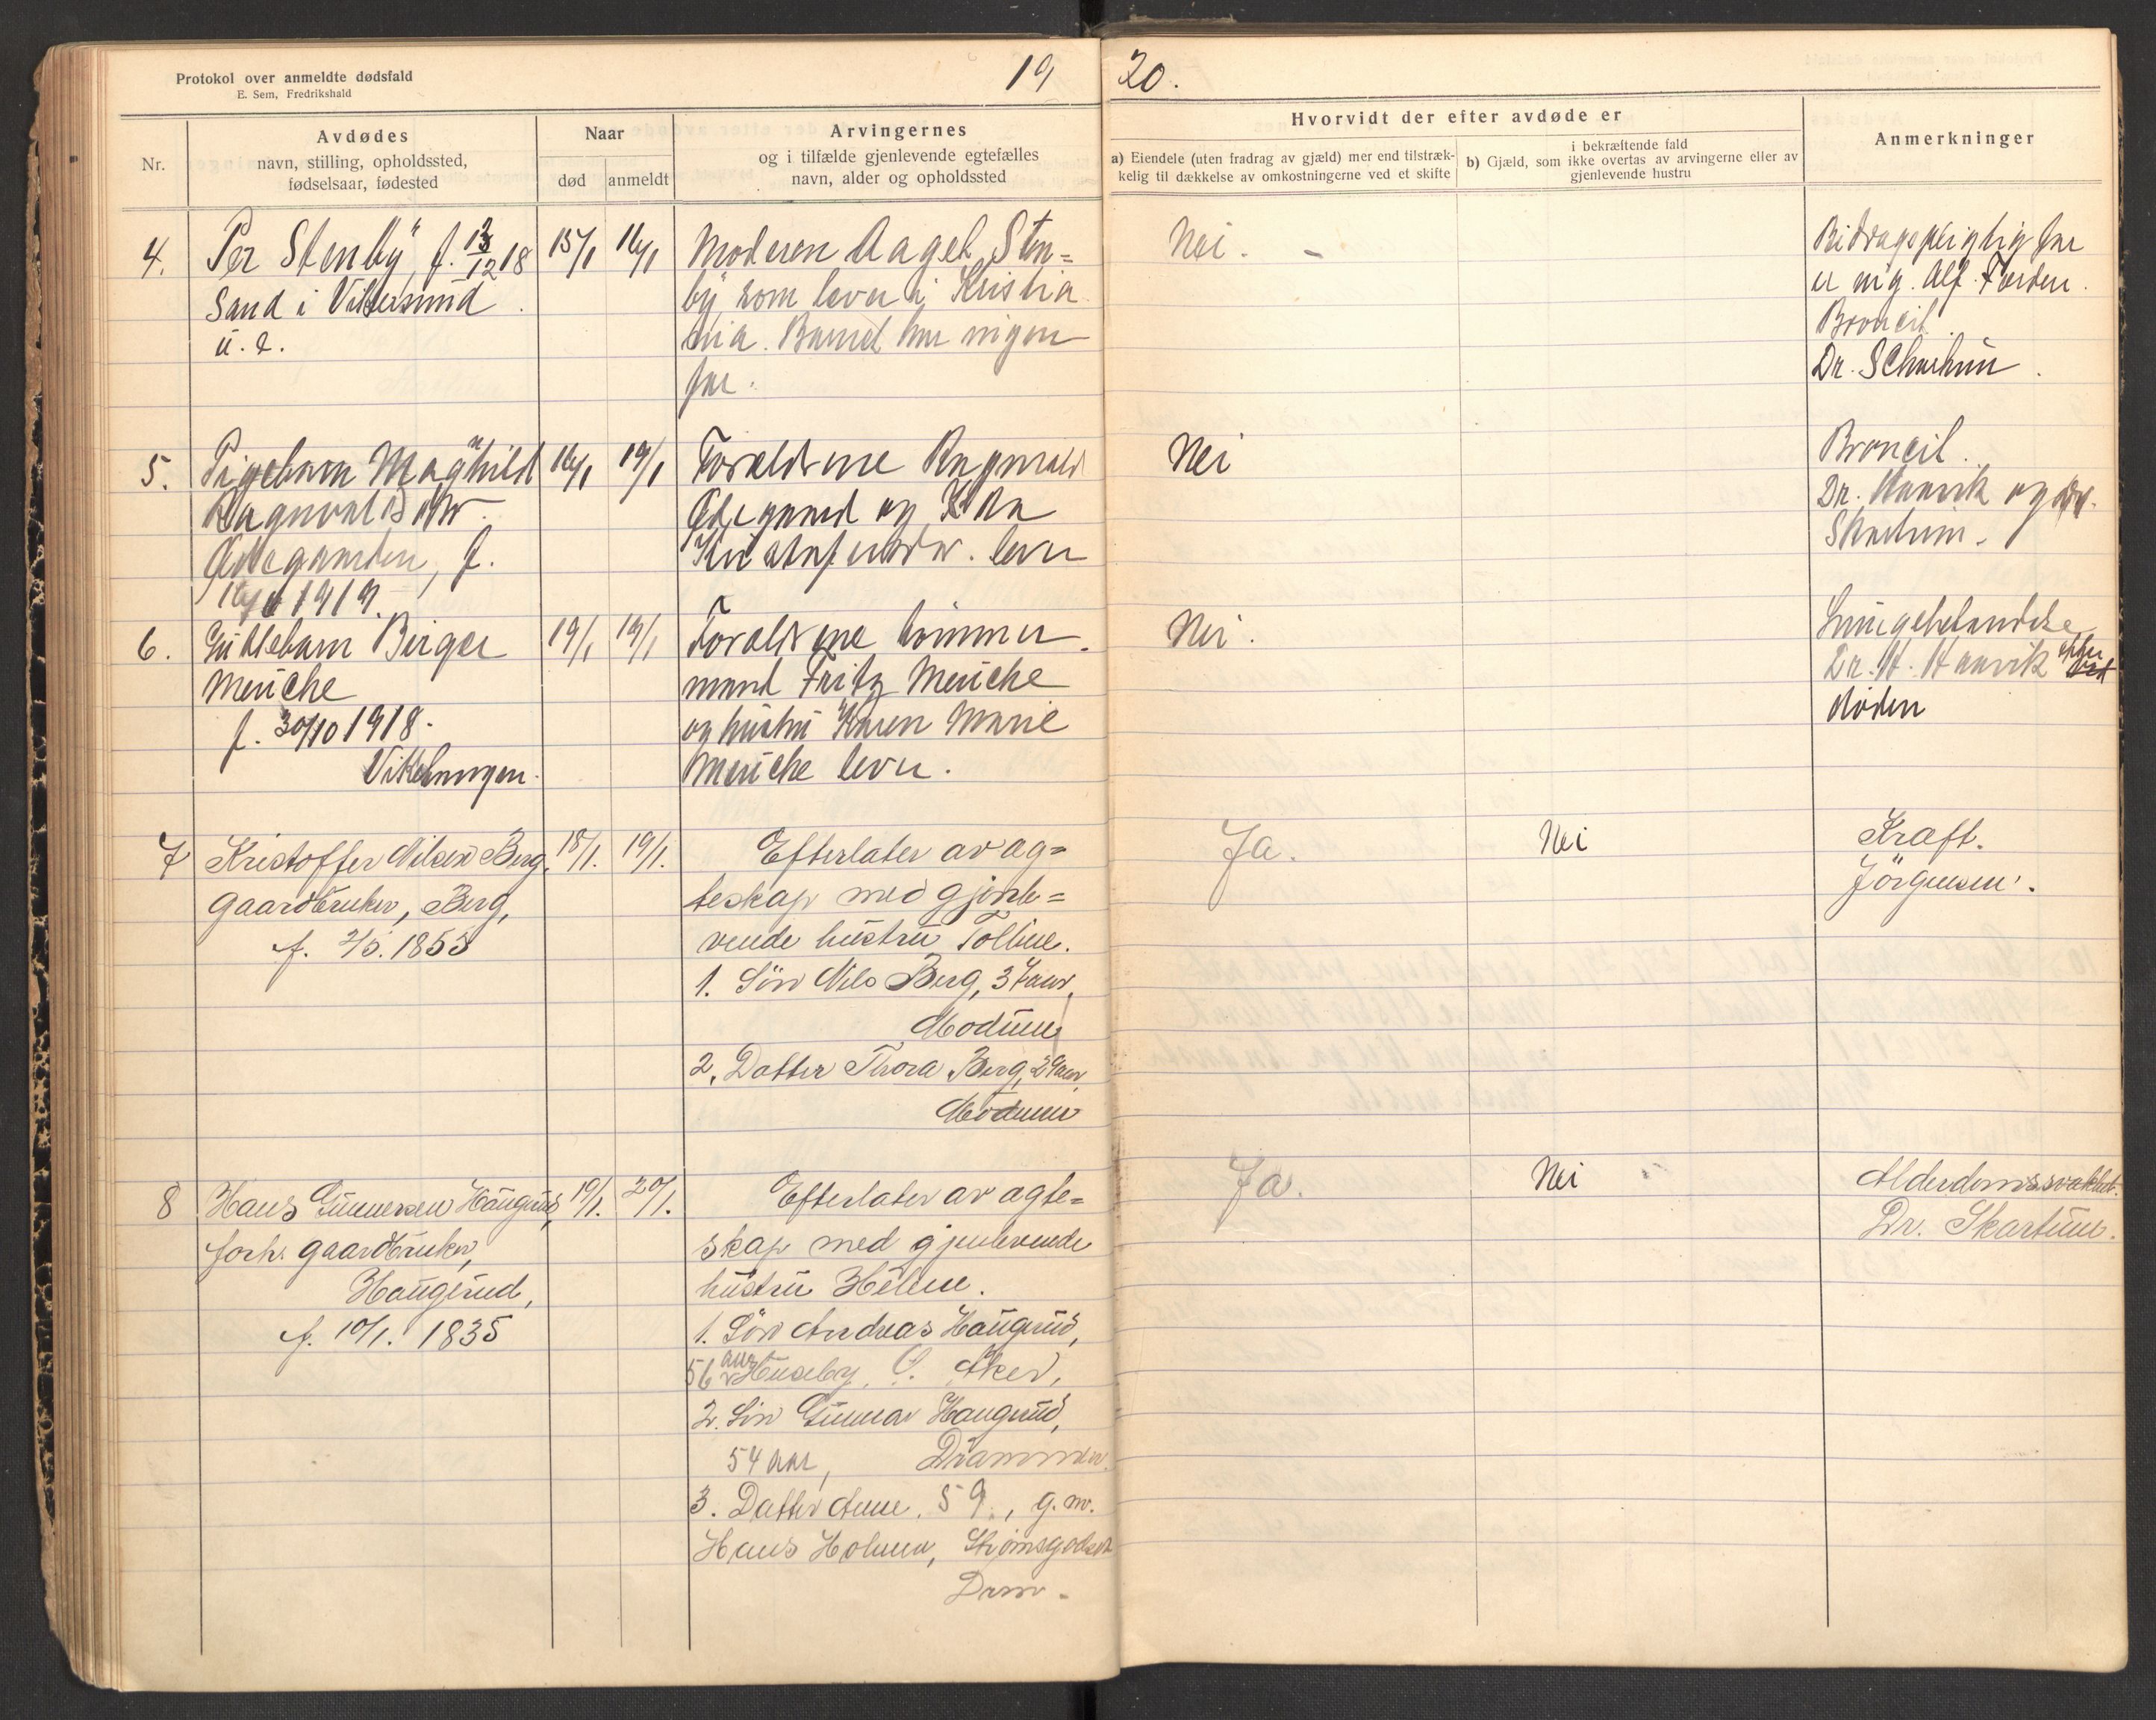 Protokol over anmeldte dødsfald
E. Sem, Fredrikshald
19
20.
Nr.
Avdødes
navn, stilling, opholdssted,
fødselsaar, fødested
Naar
død
anmeldt
Arvingernes
og i tilfælde gjenlevende egtefælles
navn, alder og opholdssted
Hvorvidt der efter avdøde er
a) Eiendele (uten fradrag av gjæld) mer end tilstræk-
kelig til dækkelse av omkostningerne ved et skifte
i bekræftende fald
b) Gjæld, som ikke overtas av arvingerne eller av
gjenlevende hustru
Anmerkninger
4.
Per Stenby, f. 13/12 18
Sand i Vikersund
u. e.
15/1
16/1
Moderen Aagot Sten=
by som lever i Kristia
nia. Barnet har ingen
far.
Nei. -
Bidragspligtig far
er ing. Alf
Broncit.
Dr.
5.
Pigebarn Magnhild
Ragnvaldsdtr.
Ødegaarden, f.
1919.
16/1
19/1
Forældrene Ragnvald
Ødegaard og
Kristofersdtr. lever
Nei
Broncit.
Dr. Hanvik og dr.
Skartum.
6.
Guttebarn Birger
Meuche
f. 30/10 1918.
19/1
19/1
Forældrene tømmer-
mand Fritz Meuche
og hustru Karen Marie
Meuche lever.
Nei.
Lungebetændelse
Dr. H. Hanvik efter
døden
7
Kristoffer Nilsen Berg.
gaardbruker, Berg,
f. 2/5. 1855
18/1.
19/1.
Efterlater av æg=
teskap med gjenle=
vende hustru Toline.
1. Søn Nils Berg, 37 aar,
Modum
2. Datter Thora Berg, 29 aar,
Modum
Ja.
Nei
Kræft.
Jörgensen.
8
Hans Gunnersen Haugrud,
forh. gaardbruker,
Haugerud,
f. 10/1. 1835
19/1.
20/1.
Efterlater av ægte=
skap med gjenlevende
hustru Helene.
1. Søn Andreas Haugrud,
56 aar Huseby, Ö. Aker,
2. Søn Gunnar Haugrud,
54 aar, Drammen.
3. Datter Anne, 59, g. m.
Hans Holmen, Strömsgodset
Drm.
Ja.
Nei
Alderdomssvakhet.
Dr. Skartum.